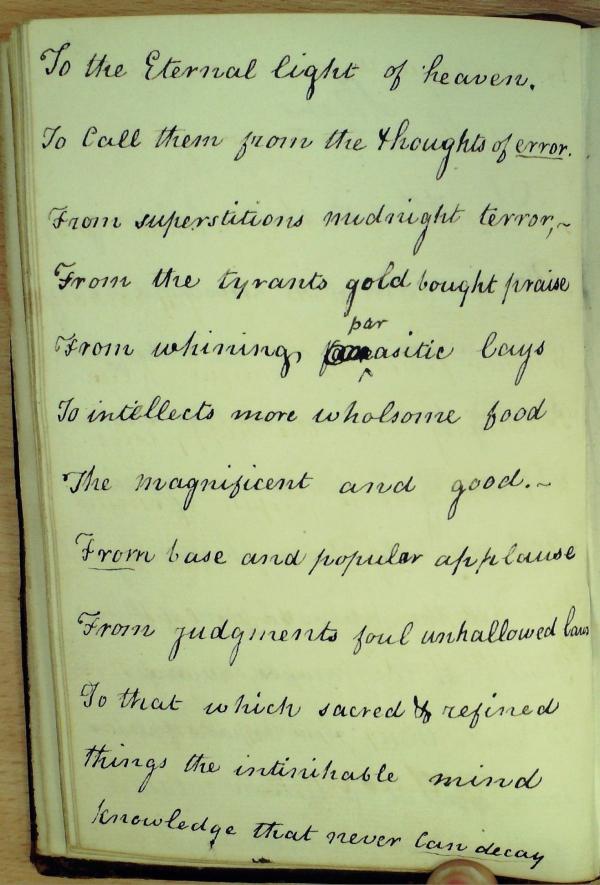 To the Eternal light of heaven.
To Call them from the thoughts of error.
From superstitions midnight terror,~
From the tyrants gold bought praise
From whining, parasitic lays
To intellects more wholsome food
The magnificent and good.~
From base and popular applause
From judgments foul unhallowed laws
To that which sacred & refined
things the intinihable mind
knowledge that never can decay